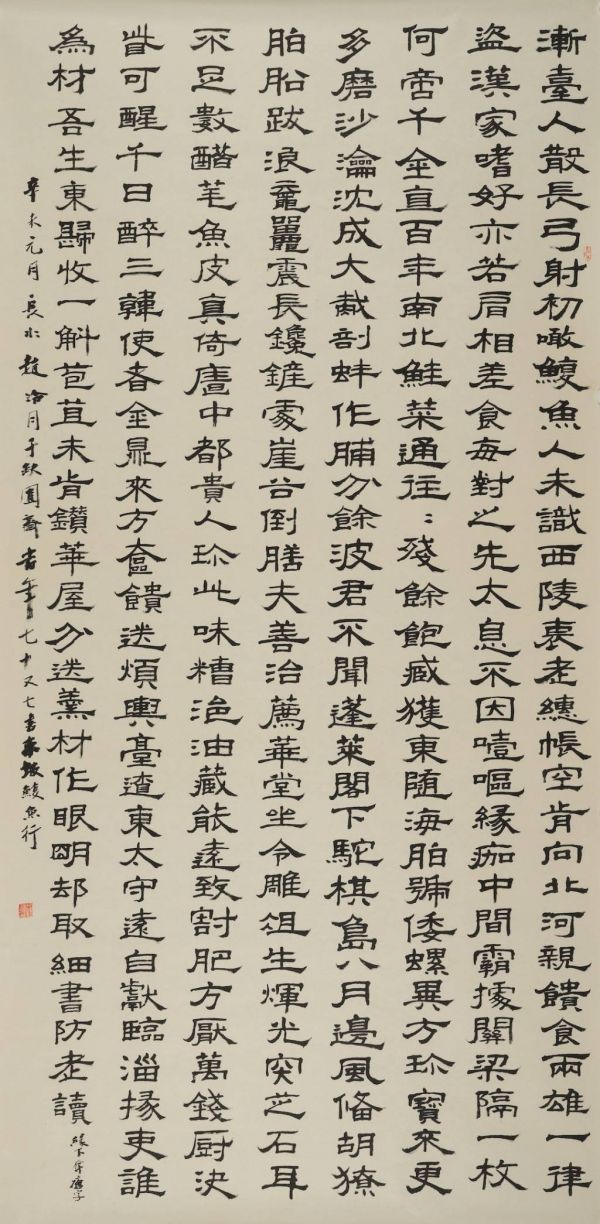 漸臺人散長弓射初噉鰒魚人未識西陵衰老繐帳空肯向北河親饋食兩雄一律
盜漢家嗜好亦若肩相差食每對之先太息不因噎嘔緣痂中間霸據關梁隔一枚
何啻千金直百年南北鮭菜通往〻殘餘飽臧獲東隨海舶號倭螺異方珍寶來更
多磨沙瀹沈成大胾剖蚌作脯分餘波君不聞蓬萊閣下駝棋島八月邊風備胡獠
舶船跋浪黿鼉震長鑱鏟處崖谷倒膳夫善治薦華堂坐令雕俎生輝光芝石耳
不足數醋芼魚皮真倚廧中都貴人珍此味糟浥油藏能遠致割肥方厭萬錢厨決
眥可醒千日醉三韓使者金鼎來方奩饋送煩輿臺遼東太守遠自獻臨淄掾吏誰
為材吾生東歸收一斛苞苴未肯鑽華屋分送羹材作眼明却取細書防老讀
緣下奪字
辛未元月長水趙冷月于缺圓齋 年七十又七書東坡鰒魚行